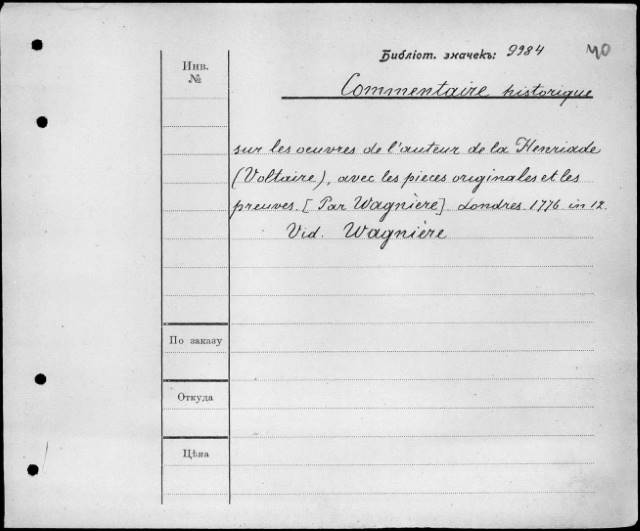 Библіот. значекъ: 9984
Инв.
№
Commentaire historique
sur les oeuvres de l'auteur de la Henriade
(Voltaire), avec les pieces originales et les
preuves. [Par Wagnière] Londres 1776 in 12.
Vid. Wagnière
По заказу
Откуда
Цѣна